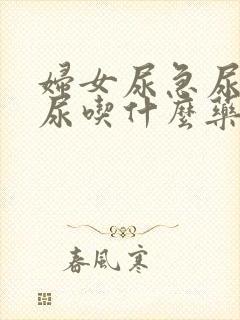 婦女尿急尿
尿喫什麼藥
春風寒